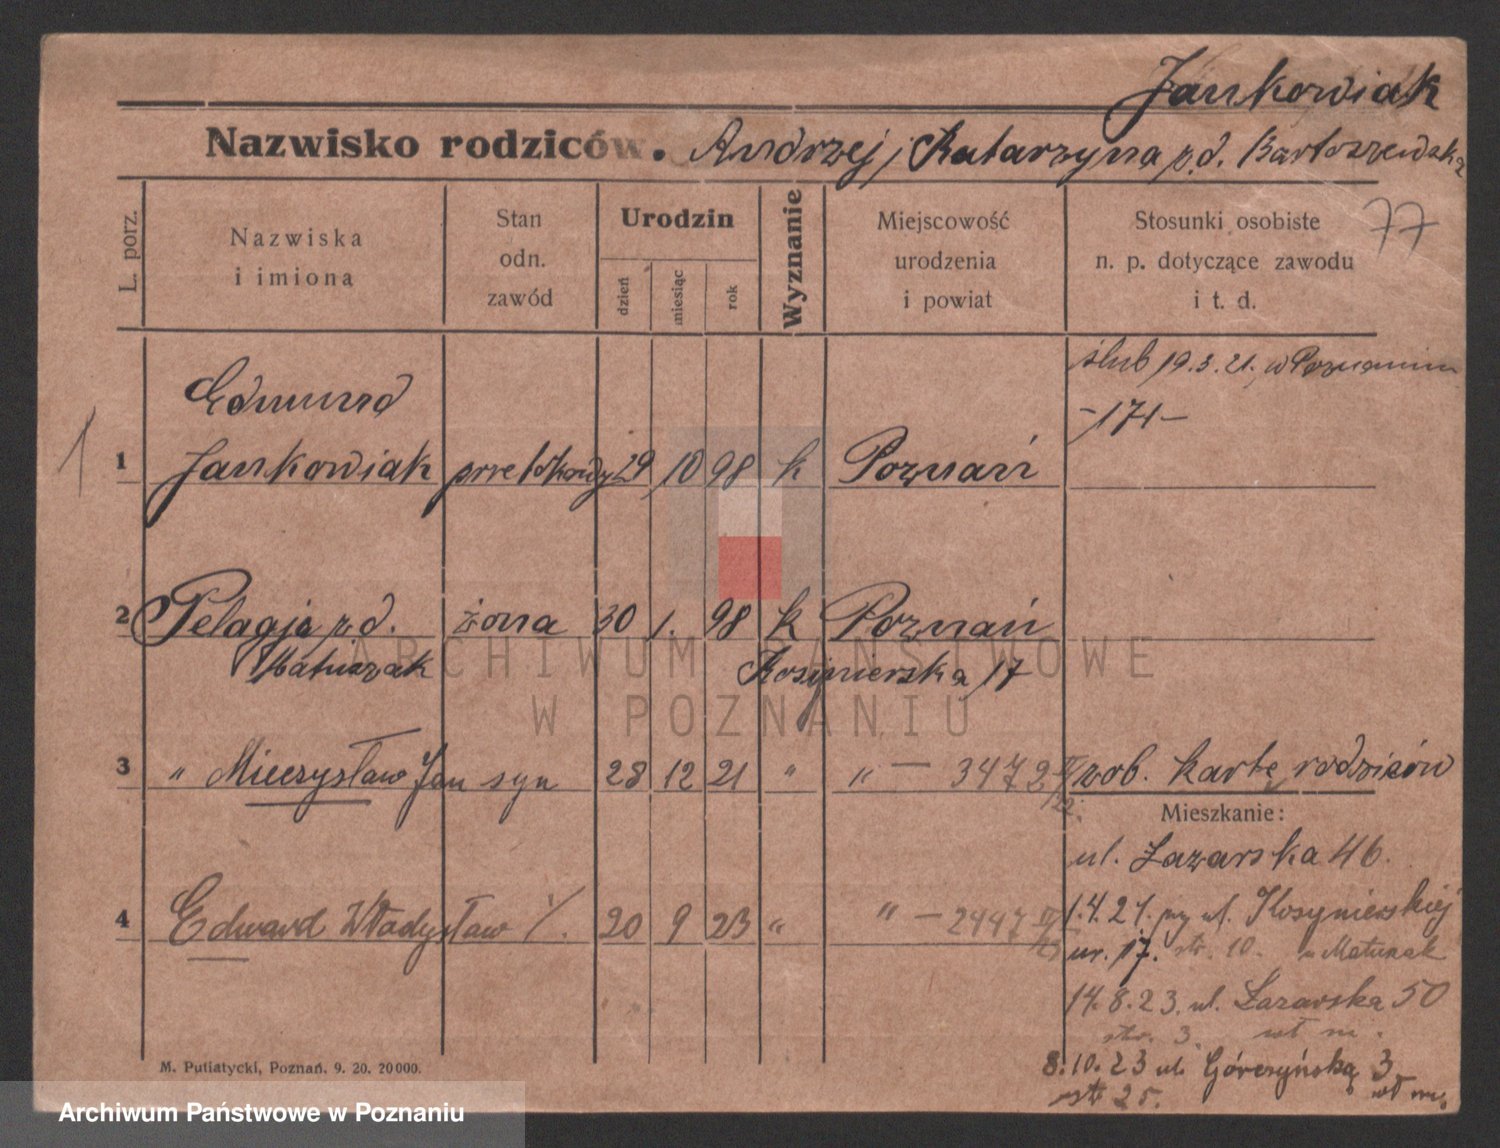 Jankowiak
Nazwisko rodziców. Andrzej, Katarzyna z d. Bartoszewska
77
L. porz.
Nazwiska
i imiona
Stan
odn.
zawód
Urodzin
dzień
miesiąc
rok
Wyznanie
Miejscowość
urodzenia
i powiat
Stosunki osobiste
n. p. dotyczące zawodu
i t. d.
ślub 19.3.21. w Poznaniu
-171-
Edmund
1 1 Jankowiak 29 10 98 k Poznań
2 Pelagja z d. żona 30 1. 98 k Poznań
Matuszak Kosynierska 17
3 " Mieczysław Jan syn 28 12 21 " " — 3472 zob. kartę rodziców
22.
Mieszkanie:
ul. Łazarska 46.
4 Edward Władysław 20 9 23 " " — 2447 IV
23
1.4.21. przy ul. Kosynierskiej
nr. 17. str. 10. u Matuszak
14.8.23. ul. Łazarska 50
str. 3.
8.10.23 ul. Górczyńska 3
str 25.
M. Putiatycki, Poznań, 9. 20. 20000.
ARCHIWUM PAŃSTWOWE
W POZNANIU
Archiwum Państwowe w Poznaniu